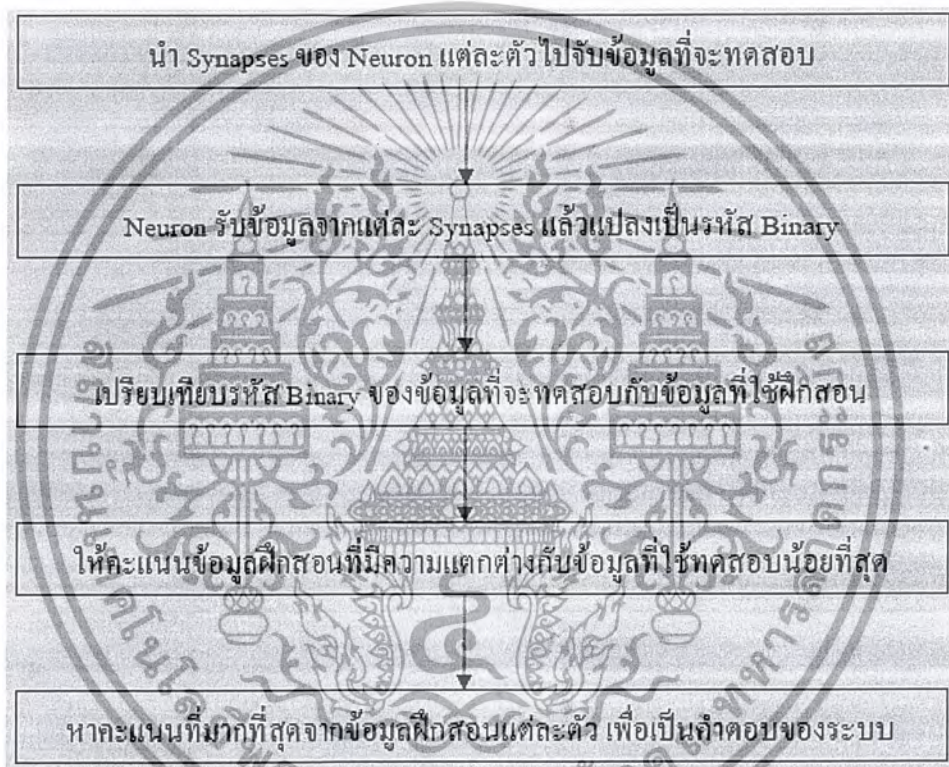 นำ Synapses ของ Neuron แต่ละตัวไปจับข้อมูลที่จะทดสอบ
Neuron รับข้อมูลจากแต่ละ Synapses แล้วแปลงเป็นรหัส Binary
เปรียบเทียบรหัส Binary ของข้อมูลที่จะทดสอบกับข้อมูลที่ใช้ฝึกสอน
ให้คะแนนข้อมูลฝึกสอนที่มีความแตกต่างกับข้อมูลที่ใช้ทดสอบน้อยที่สุด
หาคะแนนที่มากที่สุดจากข้อมูลฝึกสอนแต่ละตัว เพื่อเป็นคำตอบของระบบ